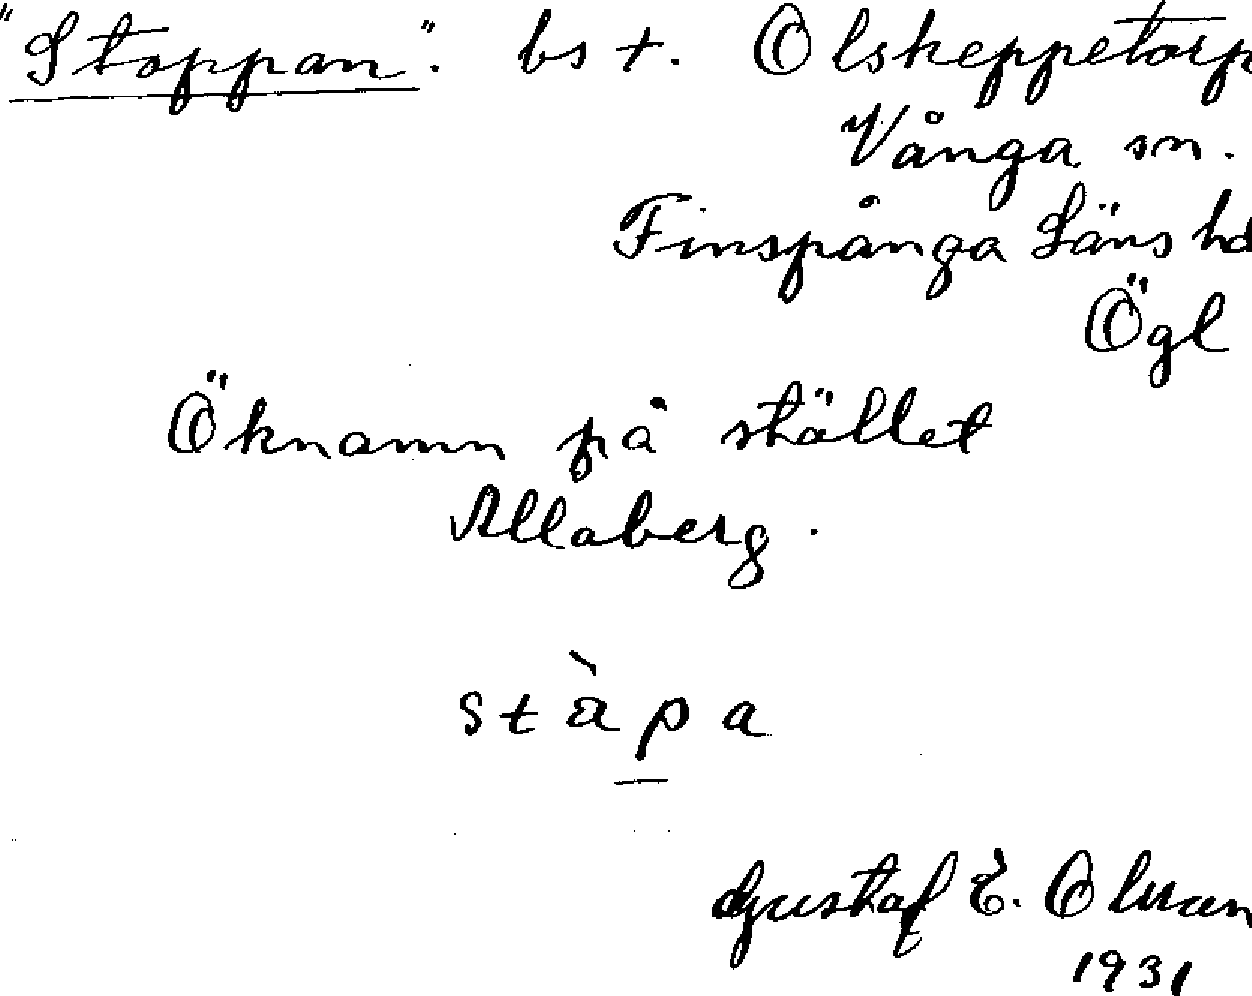 "Stoppan". bst. Olskeppetorp
Vånga sn.
Finspånga Läns hd
Ögl
Öknamn på stället
Allaberg.
stàpa
Gustaf E.
1931